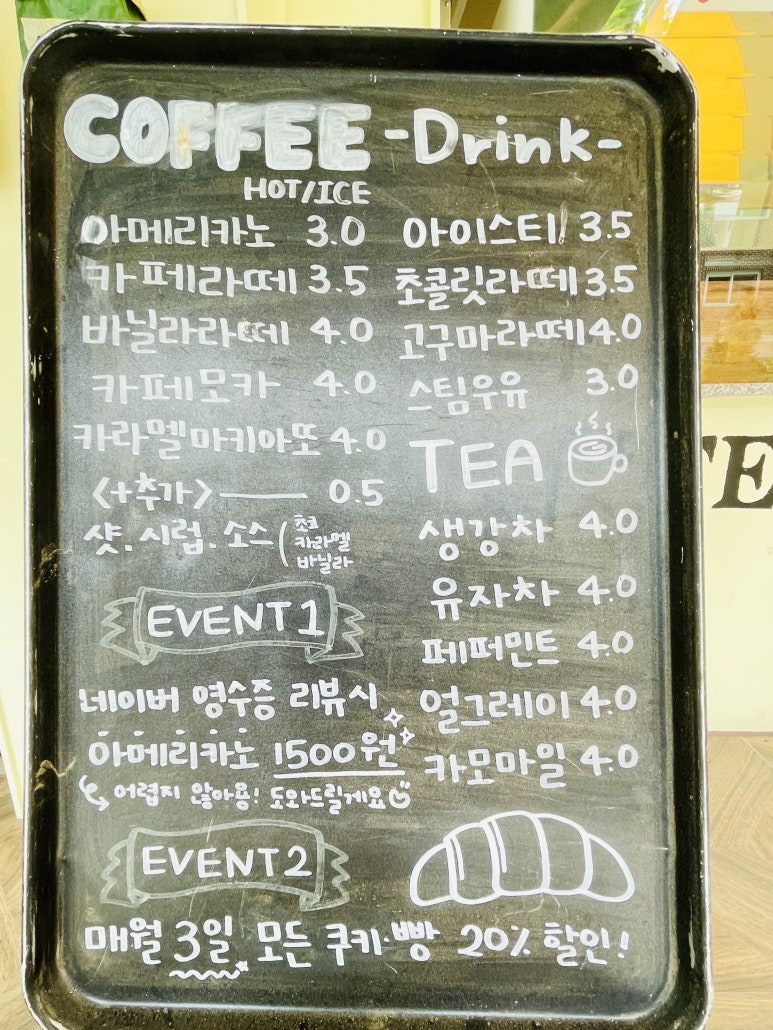 COFFEE
HOT/ICE
아메리카노 3.0
카페라떼 3.5
바닐라라떼 4.0
카페모카 4.0
카라멜마키아또 4.0
<+추가> 0.5
샷. 시럽. 소스 (초코
카라멜
바닐라
EVENT1
네이버 영수증 리뷰시
아메리카노 1500원
어렵지 않아용! 도와드릴게요
EVENT2
-Drink-
아이스티 3.5
초콜릿라떼 3.5
고구마라떼 4.0
스팀우유 3.0
TEA
생강차 4.0
유자차 4.0
페퍼민트 4.0
얼그레이 4.0
카모마일 4.0
매월 3일 모든 쿠키·빵 20% 할인!